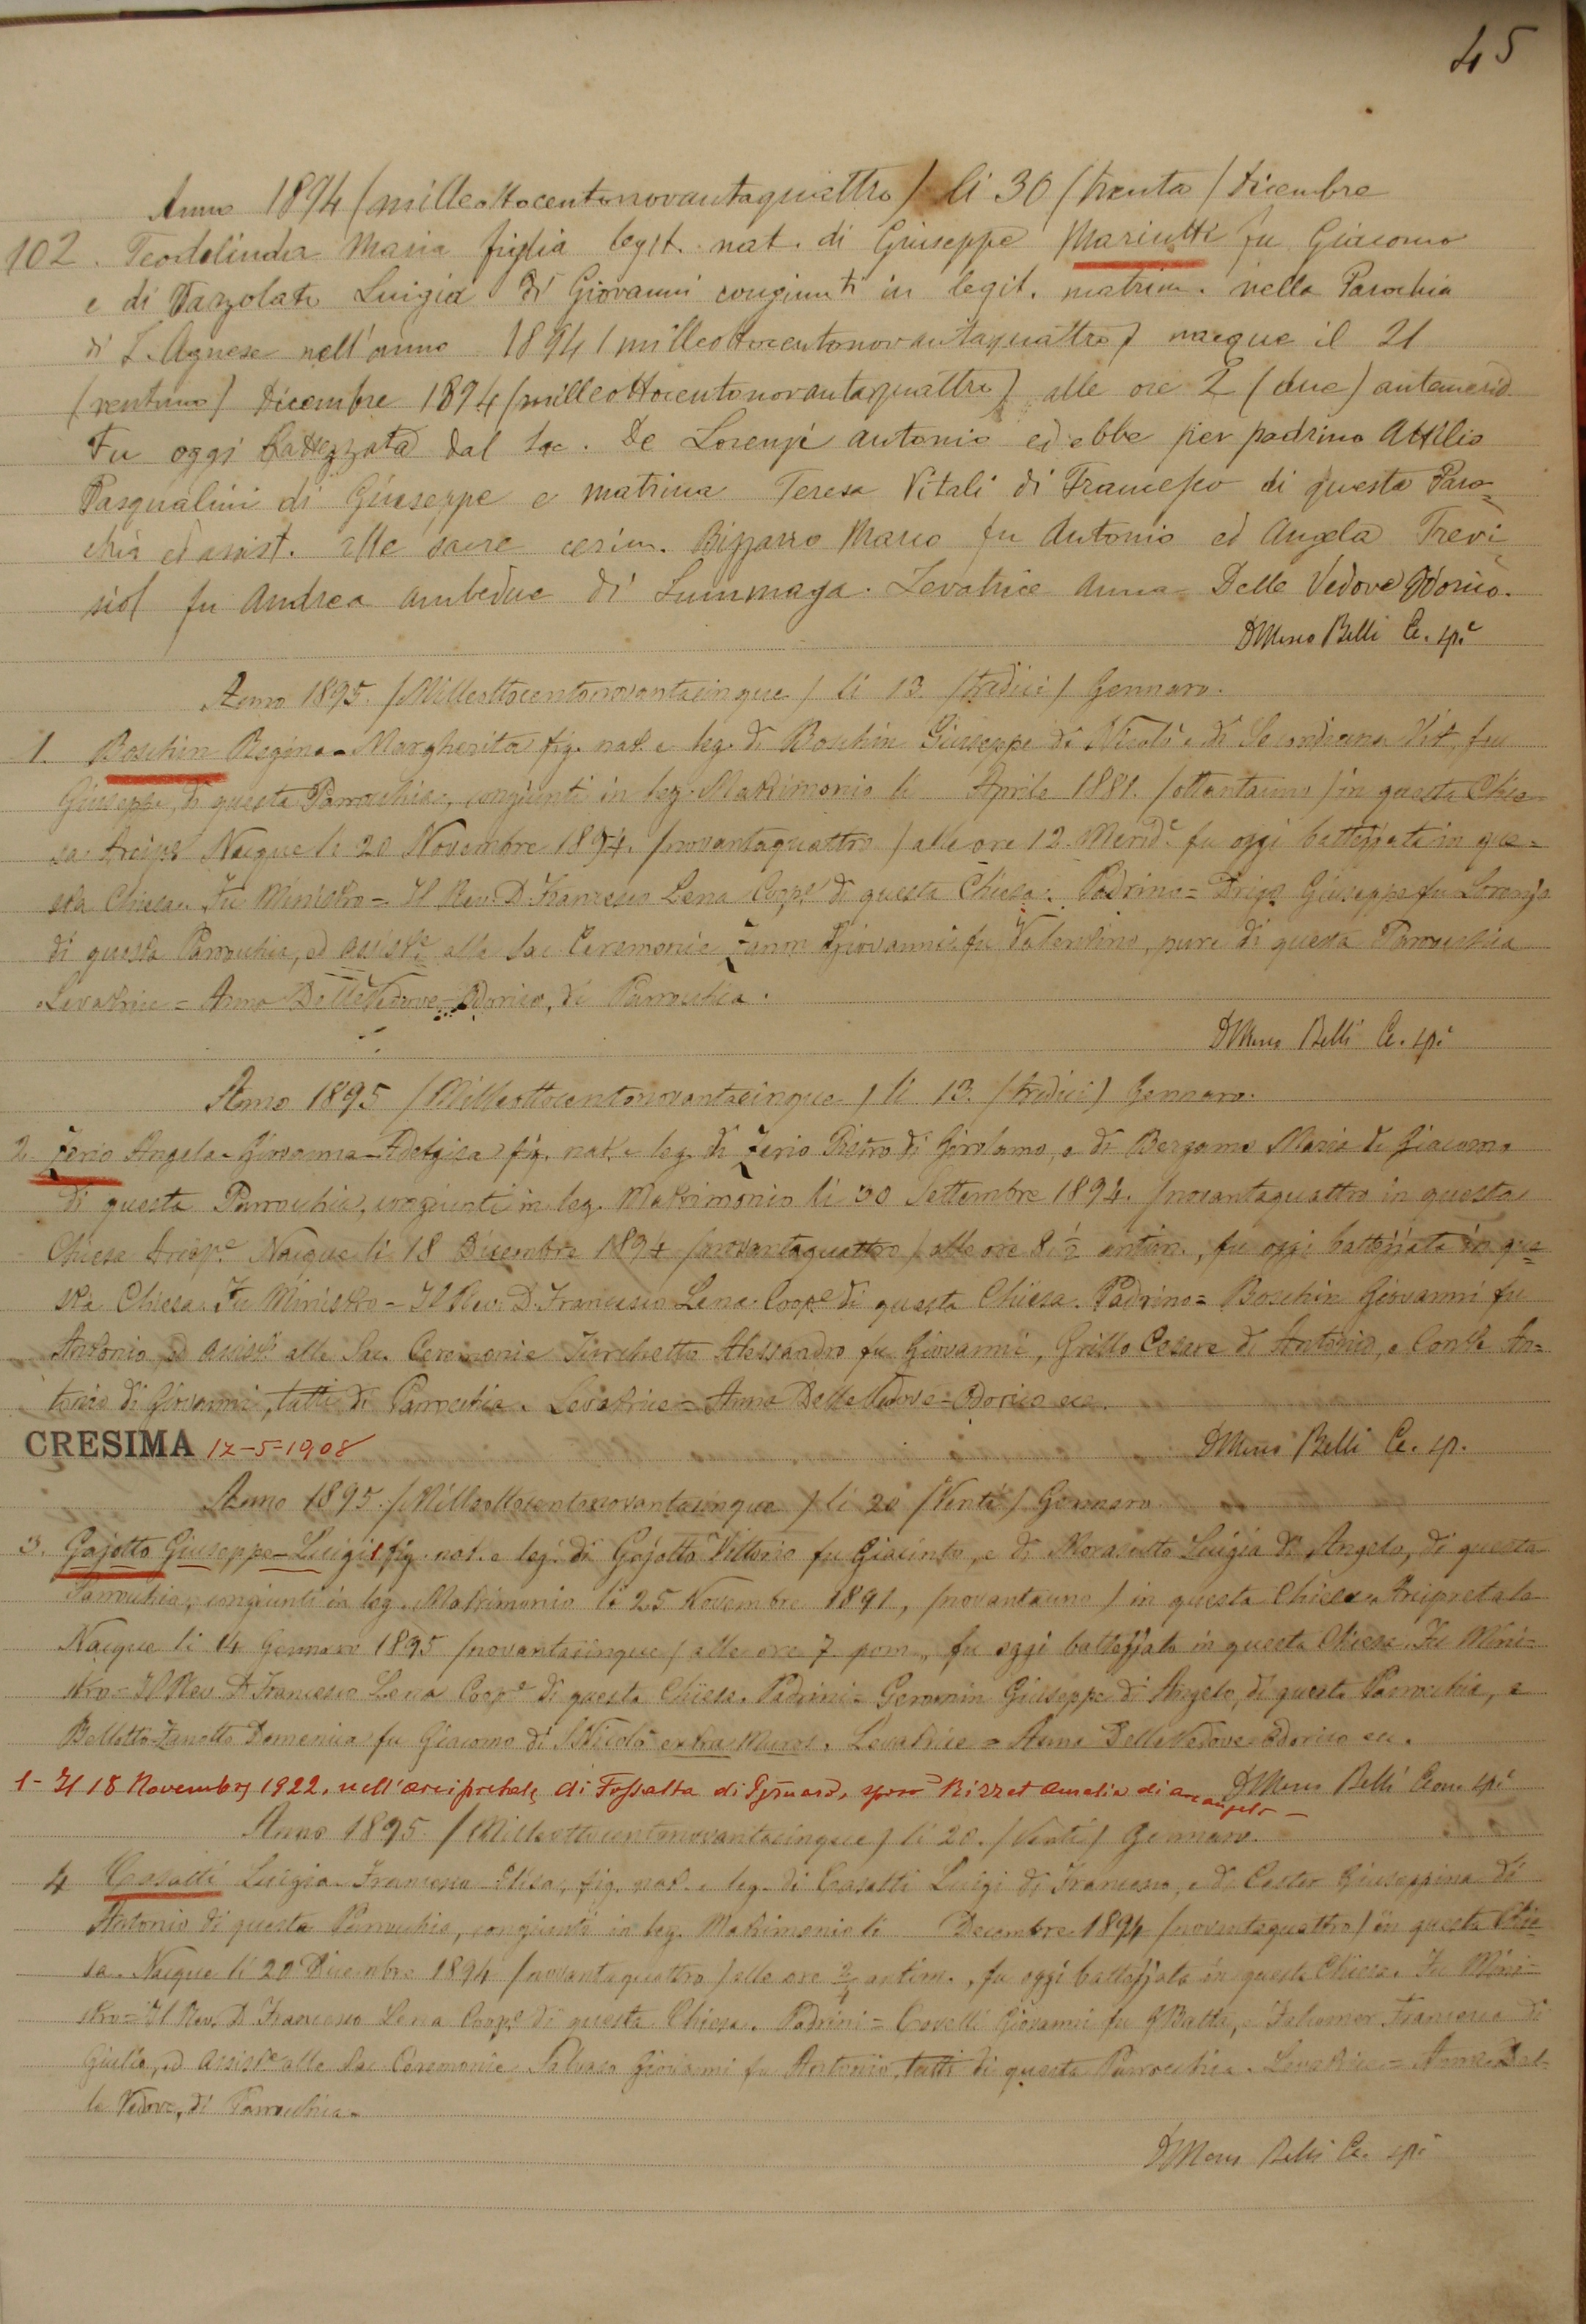 45
Anno 1894 (milleottocentonovantaquattro) li 30 (trenta) Dicembre
102. Teodolinda Maria figlia legit. nat. di Giuseppe Mariutti fu Giacomo
e di Luigia di Giovanni congiunti in legit. matrim. nella Parochia
di S. Agnese nell'anno 1894 (milleottocentonovantaquattro) nacque il 21
(ventuno) Dicembre 1894 (milleottocentonovantaquattro) alle ore 2 (due) antimerid.
Fu oggi battezzata dal Sac. De Lorenzi Antonio ed ebbe per padrino Attilio
Pasqualini di Giuseppe e matrina Teresa Vitali di Francesco di questa Paro=
chia ed assist. alle sacre cerim. Bizzarro Marco fu Antonio ed Angela Trevi=
siol fu Andrea ambedue di Summaga. Levatrice Anna Delle Vedove Odorico.
Belli
Anno 1895. (Milleottocentonovantacinque) li 13. (tredici) Gennaro.
1. Boschin Regina-Margherita fig. nat. e leg. di Boschin Giuseppe di Nicolò e di Vit fu
Giuseppe, di questa Parrocchia, congiunti in leg. Matrimonio li Aprile 1881. (ottantauno) in questa Chie=
sa Arcip.e Nacque li 20 Novembre 1894. (novantaquattro) alle ore 12. Merid.e fu oggi battezzata in que=
sta Chiesa. Fu Ministro = Il Rev. D. Francesco Lena Coop.e di questa Chiesa. Padrino = Drigo Giuseppe fu Lorenzo
di questa Parrocchia, ed assist.e alle Sac. Ceremonie Zanon Giovanni fu Valentino, pure di questa Parrocchia
Levatrice = Anna Delle Vedove-Odorico, di Parrocchia.
Belli
Anno 1895 (Milleottocentonovantacinque) li 13. (tredici) Gennaro.
2. Zerio Angela-Giovanna-Adelgisa fig. nat. e leg. di Zerio Pietro di Girolamo, e di Bergamo Maria di Giacomo
di questa Parrocchia, congiunti in leg. Matrimonio li 30 Settembre 1894. (novantaquattro in questa
Chiesa Arcip.e Nacque li 18 Dicembre 1894 (novantaquattro) alle ore 8 ½ antim., fu oggi battezzata in que=
sta Chiesa. Fu Ministro = Il Rev. D. Francesco Lena Coop.e di questa Chiesa. Padrino = Boschin Giovanni fu
Antonio, ed assist.i alle Sac. Ceremonie Turchetto Alessandro fu Giovanni, Grillo Cesare di Antonio, e Conte An=
tonio di Giovanni, tutti di Parrocchia. Levatrice = Anna Delle Vedove-Odorico ecc.
CRESIMA 17-5-1908
Belli
Anno 1895. (Milleottocentonovantacinque) li 20 (Venti) Gennaro
3. Gajotto Giuseppe-Luigi fig. nat. e leg. di Gajotto Vittorio fu Giacinto, e di Morasutto Luigia di Angelo, di questa
Parrocchia, congiunti in leg. Matrimonio li 25 Novembre 1891, (novantauno) in questa Chiesa Arcipretale
Nacque li 14 Gennaro 1895 (novantacinque) alle ore 7. pom., fu oggi battezzato in questa Chiesa. Fu Mini=
stro = Il Rev. D. Francesco Lena Coop.e di questa Chiesa. Padrini = Geromin Giuseppe di Angelo, di questa Parrocchia, e
Bellotto-Zanotto Domenica fu Giacomo di S. Nicolò extra Muros. Levatrice = Anna Delle Vedove-Odorico ecc.
1- Il 18 Novembre 1922, nell'arcipretale di Fossalta di sposò Rizzet Amelia di Arcangelo -
Belli
Anno 1895. (Milleottocentonovantacinque) li 20. (Venti) Gennaro.
4 Casatti Luigia-Francesca-Elisa, fig. nat. e leg. di Casatti Luigi di Francesco, e di Cester Giuseppina di
Antonio di questa Parrocchia, congiunti in leg. Matrimonio li Decembre 1894 (novantaquattro) in questa Chie=
sa. Nacque li 20 Dicembre 1894 (novantaquattro) alle ore antim., fu oggi battezzata in questa Chiesa. Fu Mini=
stro = Il Rev. D. Francesco Lena Coop.e di questa Chiesa. Padrini = Covelli Giovanni fu GBatta, e Falcomer Francesca di
Giulio, ed assist.e alle Sac. Ceremonie Giovanni fu Antonio, tutti di questa Parrocchia. Levatrice = Anna Del=
le Vedove, di Parrocchia.
Belli